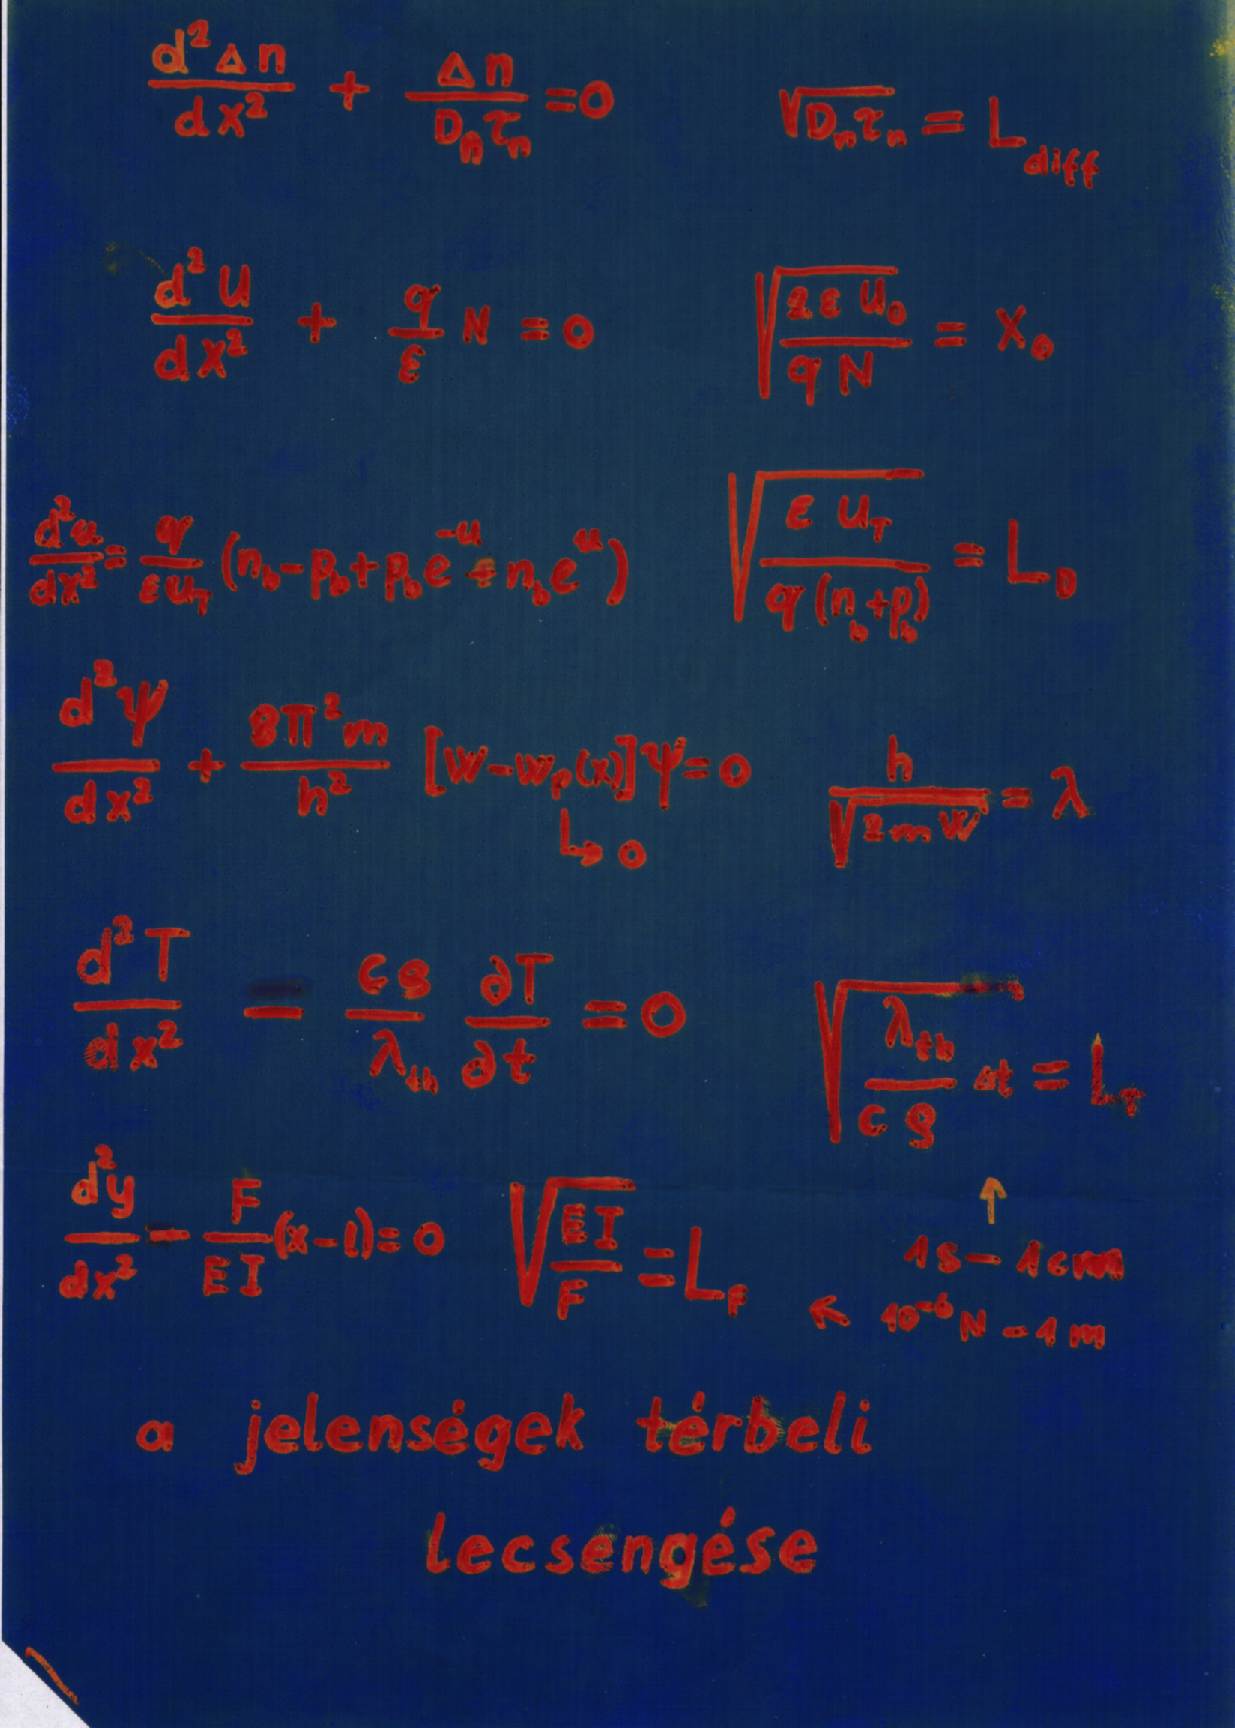 d²Δn/dx² + Δn/(Dₙτₙ) = 0    √(Dₙτₙ) = L_diff
d²U/dx² + (q/ε) N = 0    √(2εU₀/(qN)) = x₀
d²u/dx² = q/(εU_T) (n_b − p_b + p_b e^(−u) + n_b e^u)    √(εU_T/(q(n_b + p_b))) = L_D
d²ψ/dx² + (8π²m/h²) [W − W_p(x)] ψ = 0    h/√(2mW) = λ
↳ 0
d²T/dx² − (cρ/λ_th) ∂T/∂t = 0    √((λ_th/(cρ)) Δt) = L_T
↑
d²y/dx² − (F/(EI))(x − l) = 0    √(EI/F) = L_F    1s − 1cm
← 10⁻⁶ N − 1 m
a jelenségek térbeli
lecsengése